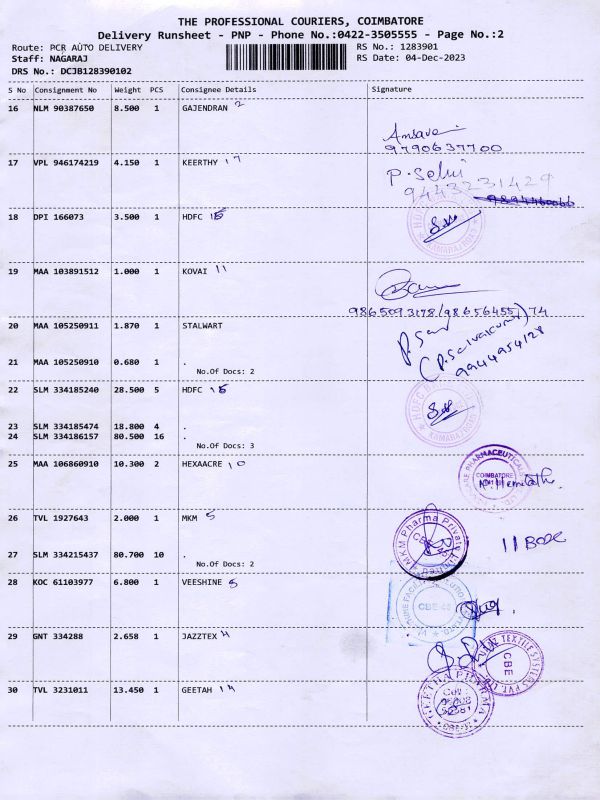 THE PROFESSIONAL COURIERS, COIMBATORE
Delivery Runsheet - PNP - Phone No.:0422-3505555 - Page No.:2
Route: PCR AUTO DELIVERY RS No.: 1283901
Staff: NAGARAJ RS Date: 04-Dec-2023
DRS No.: DCJB128390102
S No Consignment No Weight PCS Consignee Details Signature
16 NLM 90387650 8.500 1 GAJENDRAN 2
9790637700
17 VPL 946174219 4.150 1 KEERTHY 17
P. Selvi
9443231429
18 DPI 166073 3.500 1 HDFC
19 MAA 103891512 1.000 1 KOVAI 11
20 MAA 105250911 1.870 1 STALWART
P. Sel
(P. Selvakumar)
9944954128
21 MAA 105250910 0.680 1 .
No.Of Docs: 2
22 SLM 334185240 28.500 5 HDFC
23 SLM 334185474 18.800 4 .
24 SLM 334186157 80.500 16 .
No.Of Docs: 3
25 MAA 106860910 10.300 2 HEXAACRE 10
COIMBATORE
26 TVL 1927643 2.000 1 MKM 5
MKM Pharma Private
11 Box
27 SLM 334215437 80.700 10 .
No.Of Docs: 2
28 KOC 61103977 6.800 1 VEESHINE 5
29 GNT 334288 2.658 1 JAZZTEX 4
TEXTILE SYSTEMS PVT. LTD
CBE
30 TVL 3231011 13.450 1 GEETAH 14
GEETHA PHARMA